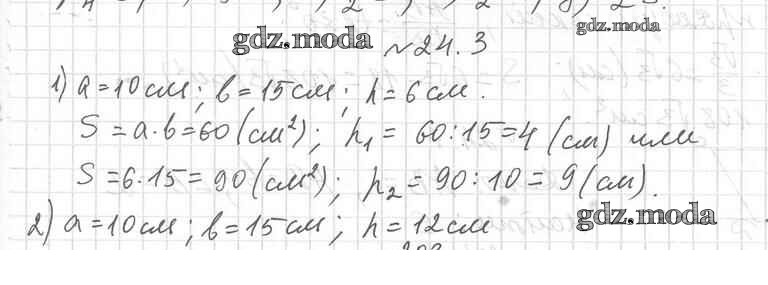 gdz.moda
gdz.moda №24.3
1) a=10см; b=15см; h=6см.
S=a·b=60(см²); h₁= 60:15=4 (см) или
S=6·15=90(см²); h₂=90:10=9(см).
2) a=10см; b=15см; h=12см
gdz.moda